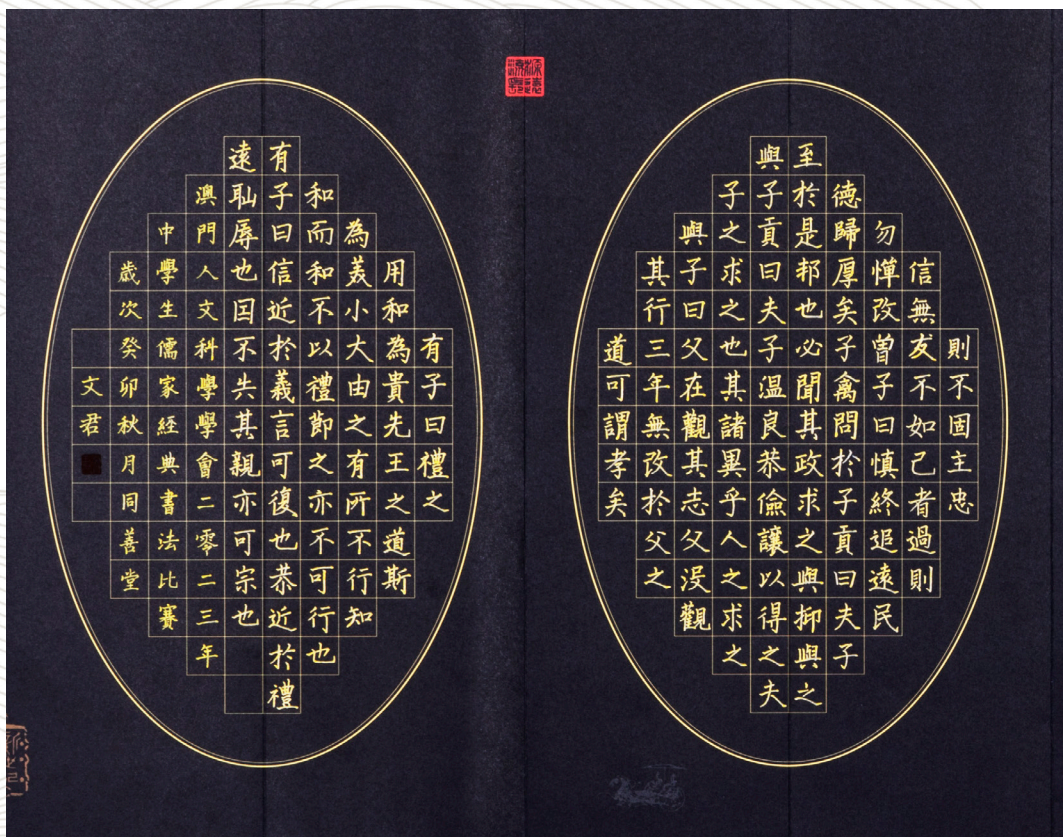 則不固主忠
信無友不如己者過則
勿憚改曾子曰慎終追遠民
德歸厚矣子禽問於子貢曰夫子
至於是邦也必聞其政求之與抑與之
與子貢曰夫子溫良恭儉讓以得之夫
子之求之也其諸異乎人之求之
與子曰父在觀其志父沒觀
其行三年無改於父之
道可謂孝矣
有子曰禮之
用和為貴先王之道斯
為美小大由之有所不行知
和而和不以禮節之亦不可行也
有子曰信近於義言可復也恭近於禮
遠耻辱也囙不失其親亦可宗也
澳門人文科學學會二零二三年
中學生儒家經典書法比賽
歲次癸卯秋月同善堂
文君